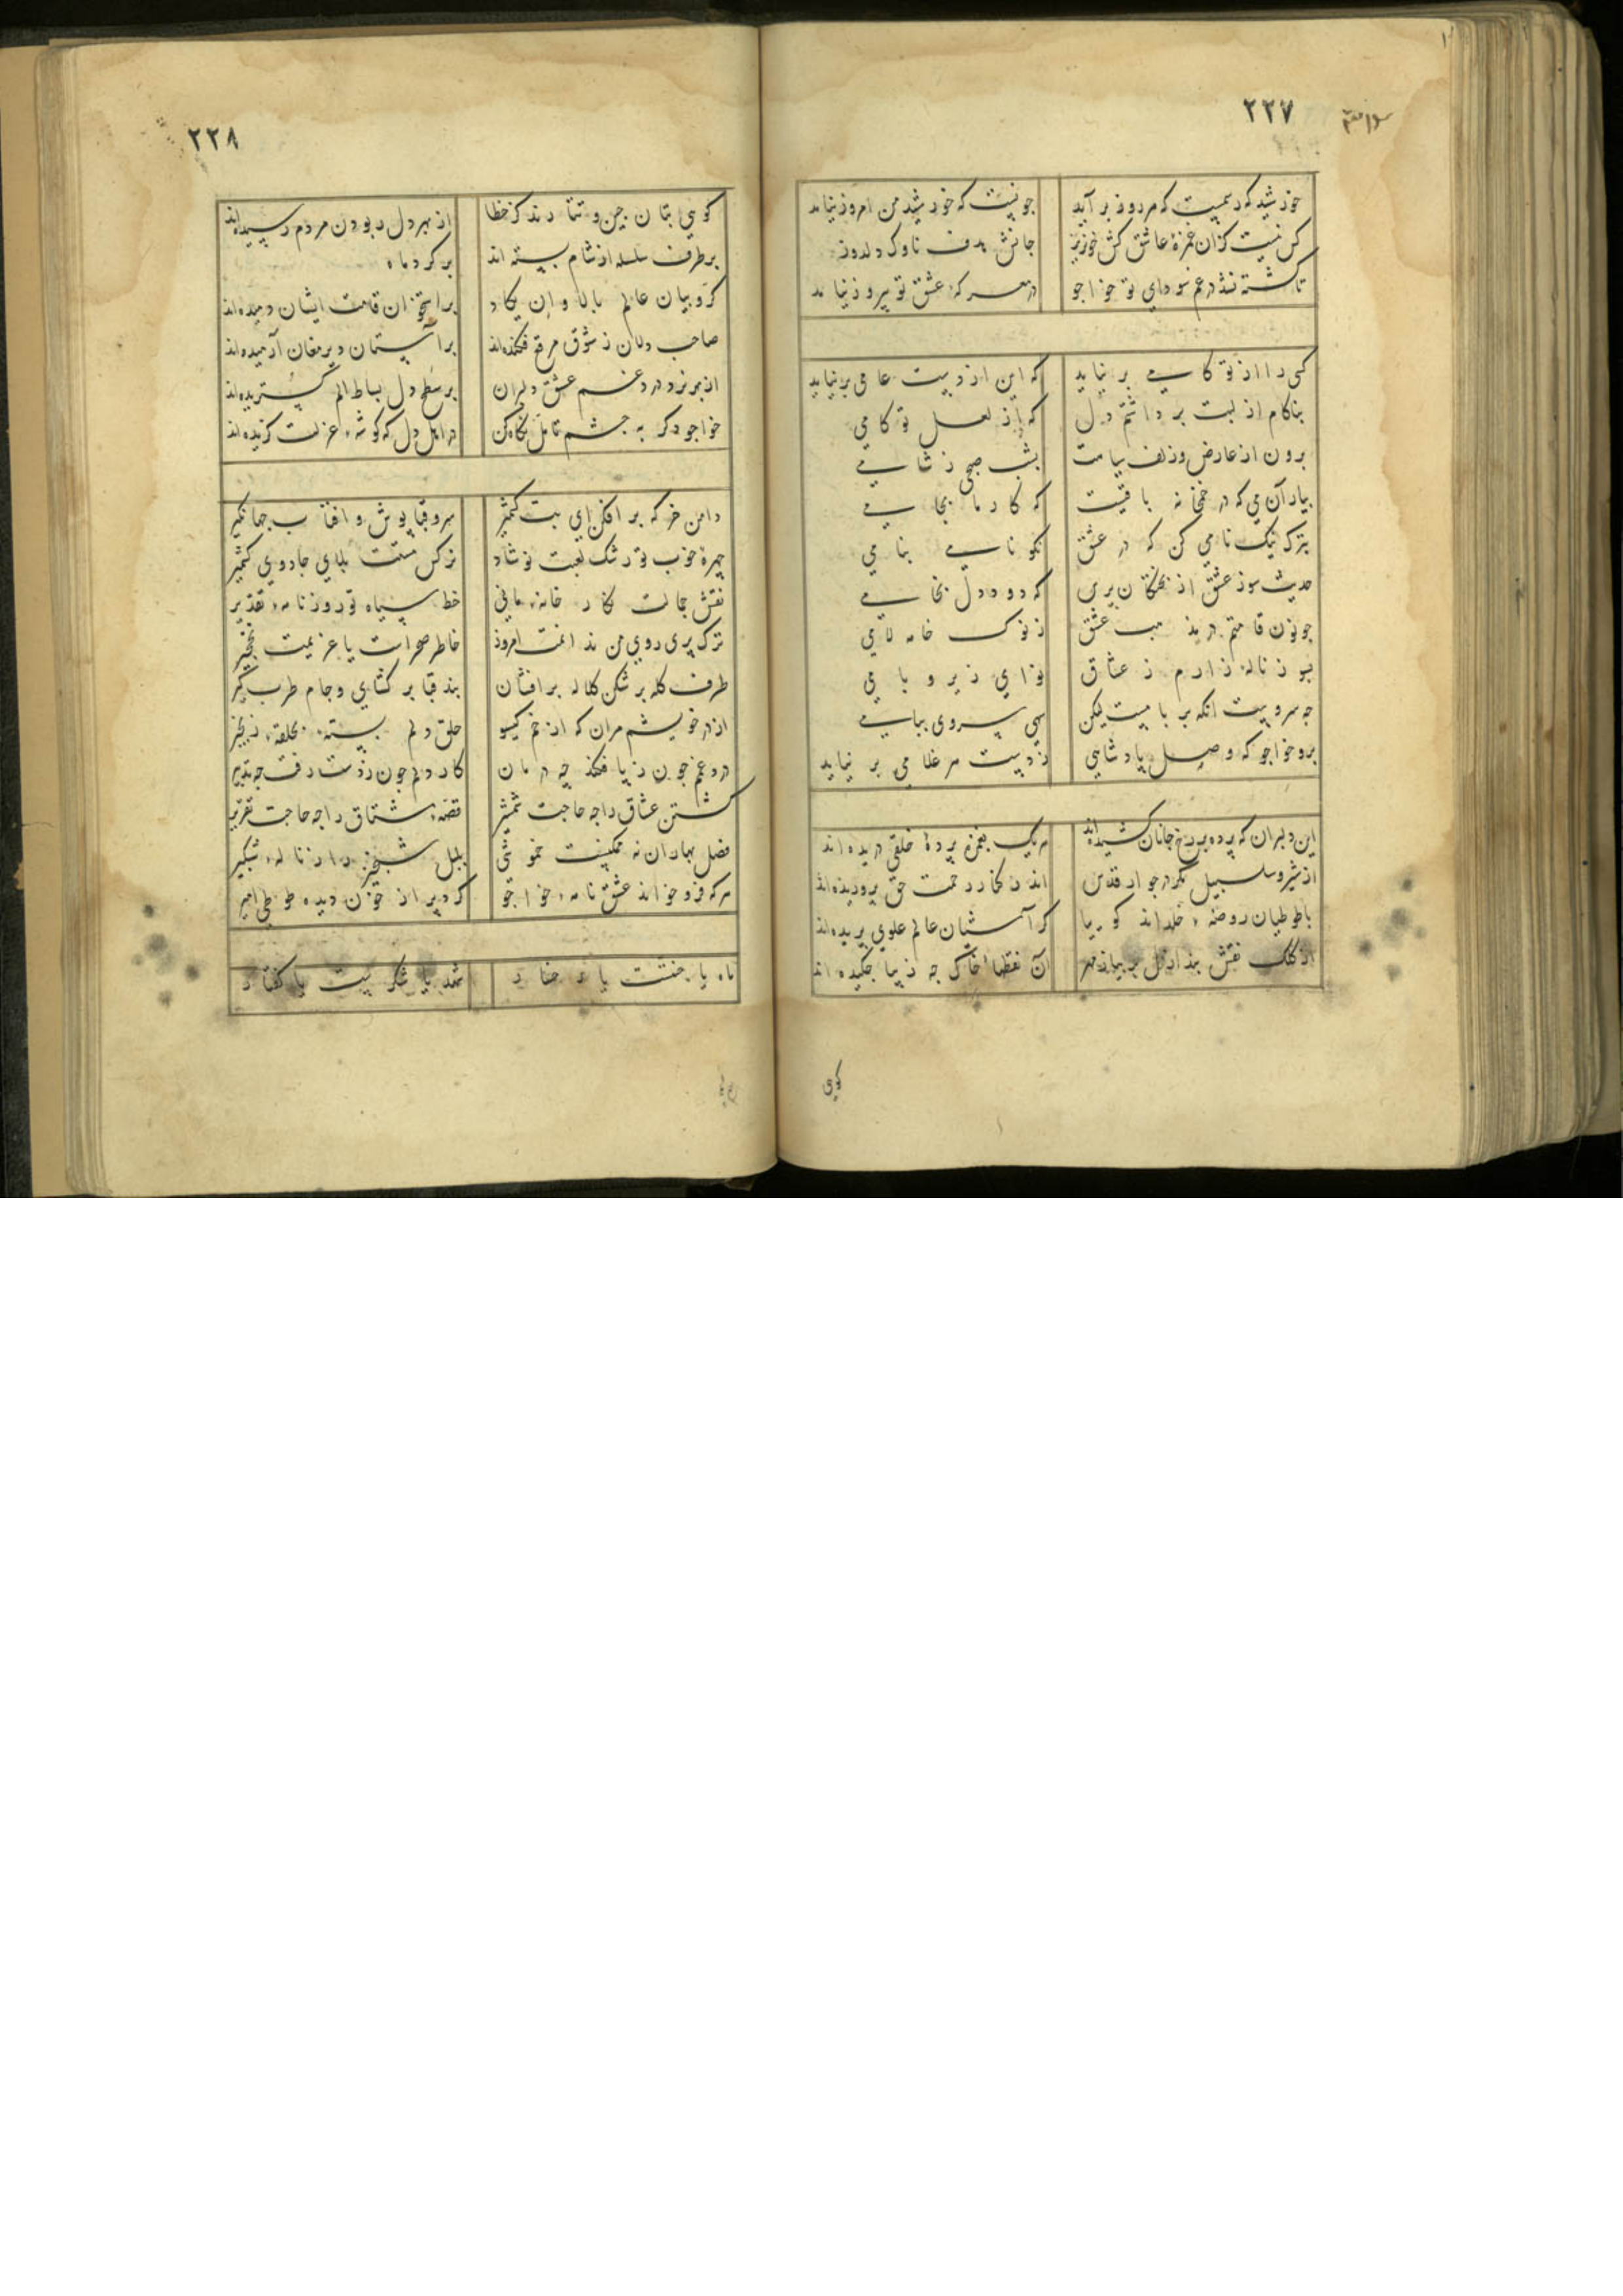 ۲۲۷
خورشید که رسمیست که هر روز برآید چونیست که خورشید من امروز نیامد
کس نیست کزان غمزهٔ عاشق کش خونریز جانش هدف ناوک دلدوز
تا کشته نشد در غم سودای تو خواجو در معرکهٔ عشق تو پیروز نیامد
کسی را از تو کامی بر نیاید که این از دست عامی بر نیاید
بناکام از لبت برداشتم دل که از لعل تو کامی
برون از عارض و زلف سیاهت بشب صبحی ز شامی
بیار آن می که در خمخانه باقیست که کار ما بجامی
بترک نیک نامی کن که در عشق نکو نامی بنامی
حدیث سوز عشق از پختکان پرس که دود دل بخامی
چو نون قامتم در بند حب عشق ز نوک خامه لامی
بسوز ناله زارم ز عشاق نوای زیر و بامی
چه سرویست انکه بر بامست لیکن سهی سروی ببامی
برو خواجو که وصل پادشاهی ز دست هر غلامی بر نیاید
این دلبران که پرده برخ جانان کشیده‌اند هر یک بغمزه پردهٔ خلقی دریده‌اند
از شیر و سلسبیل مکر در جوار قدس اندر کنار رحمت حق پروریده‌اند
با طوطیان روضهٔ خلداند کوییا کز آشیان عالم علوی پریده‌اند
از کلک نقش بند ازل بر بیاض مهر آن نقطها خاک چه زیبا چکیده‌اند
کویی
۲۲۸
کویی بتان چین و تتارند کز خطا از بهر دل ربودن مردم رسیده‌اند
بر طرف سلسله از شام بسته‌اند بر کرد ماه
کروبیان عالم بالا و ان یکاد بر استخوان قامت ایشان دمیده‌اند
صاحب دلان ز شوق مرقع فکنده‌اند بر آستان دیر مغان آرمیده‌اند
از بر نرود در غم عشق دلبران بر سطح دل بساط الم کستریده‌اند
خواجو دکر به چشم تامل نکاه کن در اهل دل که کوشهٔ عزلت کزیده‌اند
دامن خرکه بر افکن ای بت کشمیر سرو قباپوش و افتاب جهانکیر
چهرهٔ خوب تو رشک لعبت نوشاد نرکس مستت بلای جادوی کشمیر
نقش جمالت نکار خانه مانی خط سیاه تو روزنامه تقدیر
ترک پری روی من ندانمت امروز خاطر صحراست یا عزیمت نخجیر
طرف کله بر شکن کلاله بر افشان بند قبا بر کشای و جام طرب کیر
از در خویشم مران که از خم کیسو حلق دلم بسته بحلقه زنجیر
درد غمم چون ز پا فکند چه درمان کار دلم چون ز دست رفت چه تدبیر
کشتن عشاق را چه حاجت شمشیر قصه مشتاق را چه حاجت تقریر
فصل بهاران نه ممکنست خموشی بلبل شبخیز را ز نالهٔ شبکیر
هر که فرو خواند عشق نامه خواجو کرد پر از خون دیده طوطی
ماه یا جنتست یا رخسار شهد یا شکرست یا کفتار